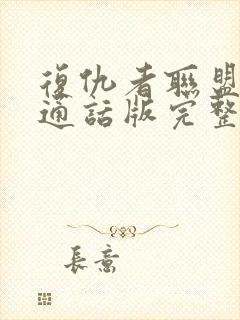 復仇者聯盟
通話版完整
長意